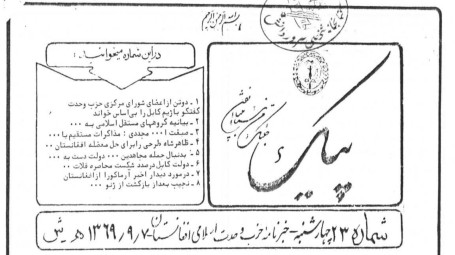 بسم الله الرحمن الرحیم
در این شماره میخوانید:
۱ ـ دوتن از اعضای شورای مرکزی حزب وحدت
گفتگو با رژیم کابل را بی‌اساس خواند
۲ ـ بیانیه گروههای مستقل اسلامی به ۰۰۰
۳ ـ صبغت ا ۰۰۰ مجددی : مذاکرات مستقیم با ۰۰۰
۴ ـ ظاهرشاه طرحی را برای حل معضله افغانستان ۰۰۰
۵ ـ بدنبال حمله مجاهدین ۰۰۰ دولت دست به ۰۰۰
۶ ـ دولت کابل درصدد شکست محاصره قلات ۰۰
۷ ـ درمورد دیدار اخیر آرماکورا از افغانستان
۸ ـ نجیب بعد از بازگشت از ژنو ۰۰۰
پیک
شماره ۲۳ چهارشنبه - خبرنامه حزب وحدت اسلامی افغانستان - ۱۳۶۹/۹/۷ هـ ش